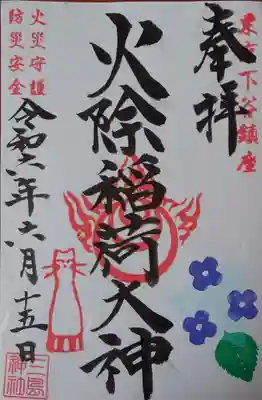 東京下谷鎮座
奉拝
火除稲荷大神
火災守護
防災安全
令和六年六月十五日
三島神社